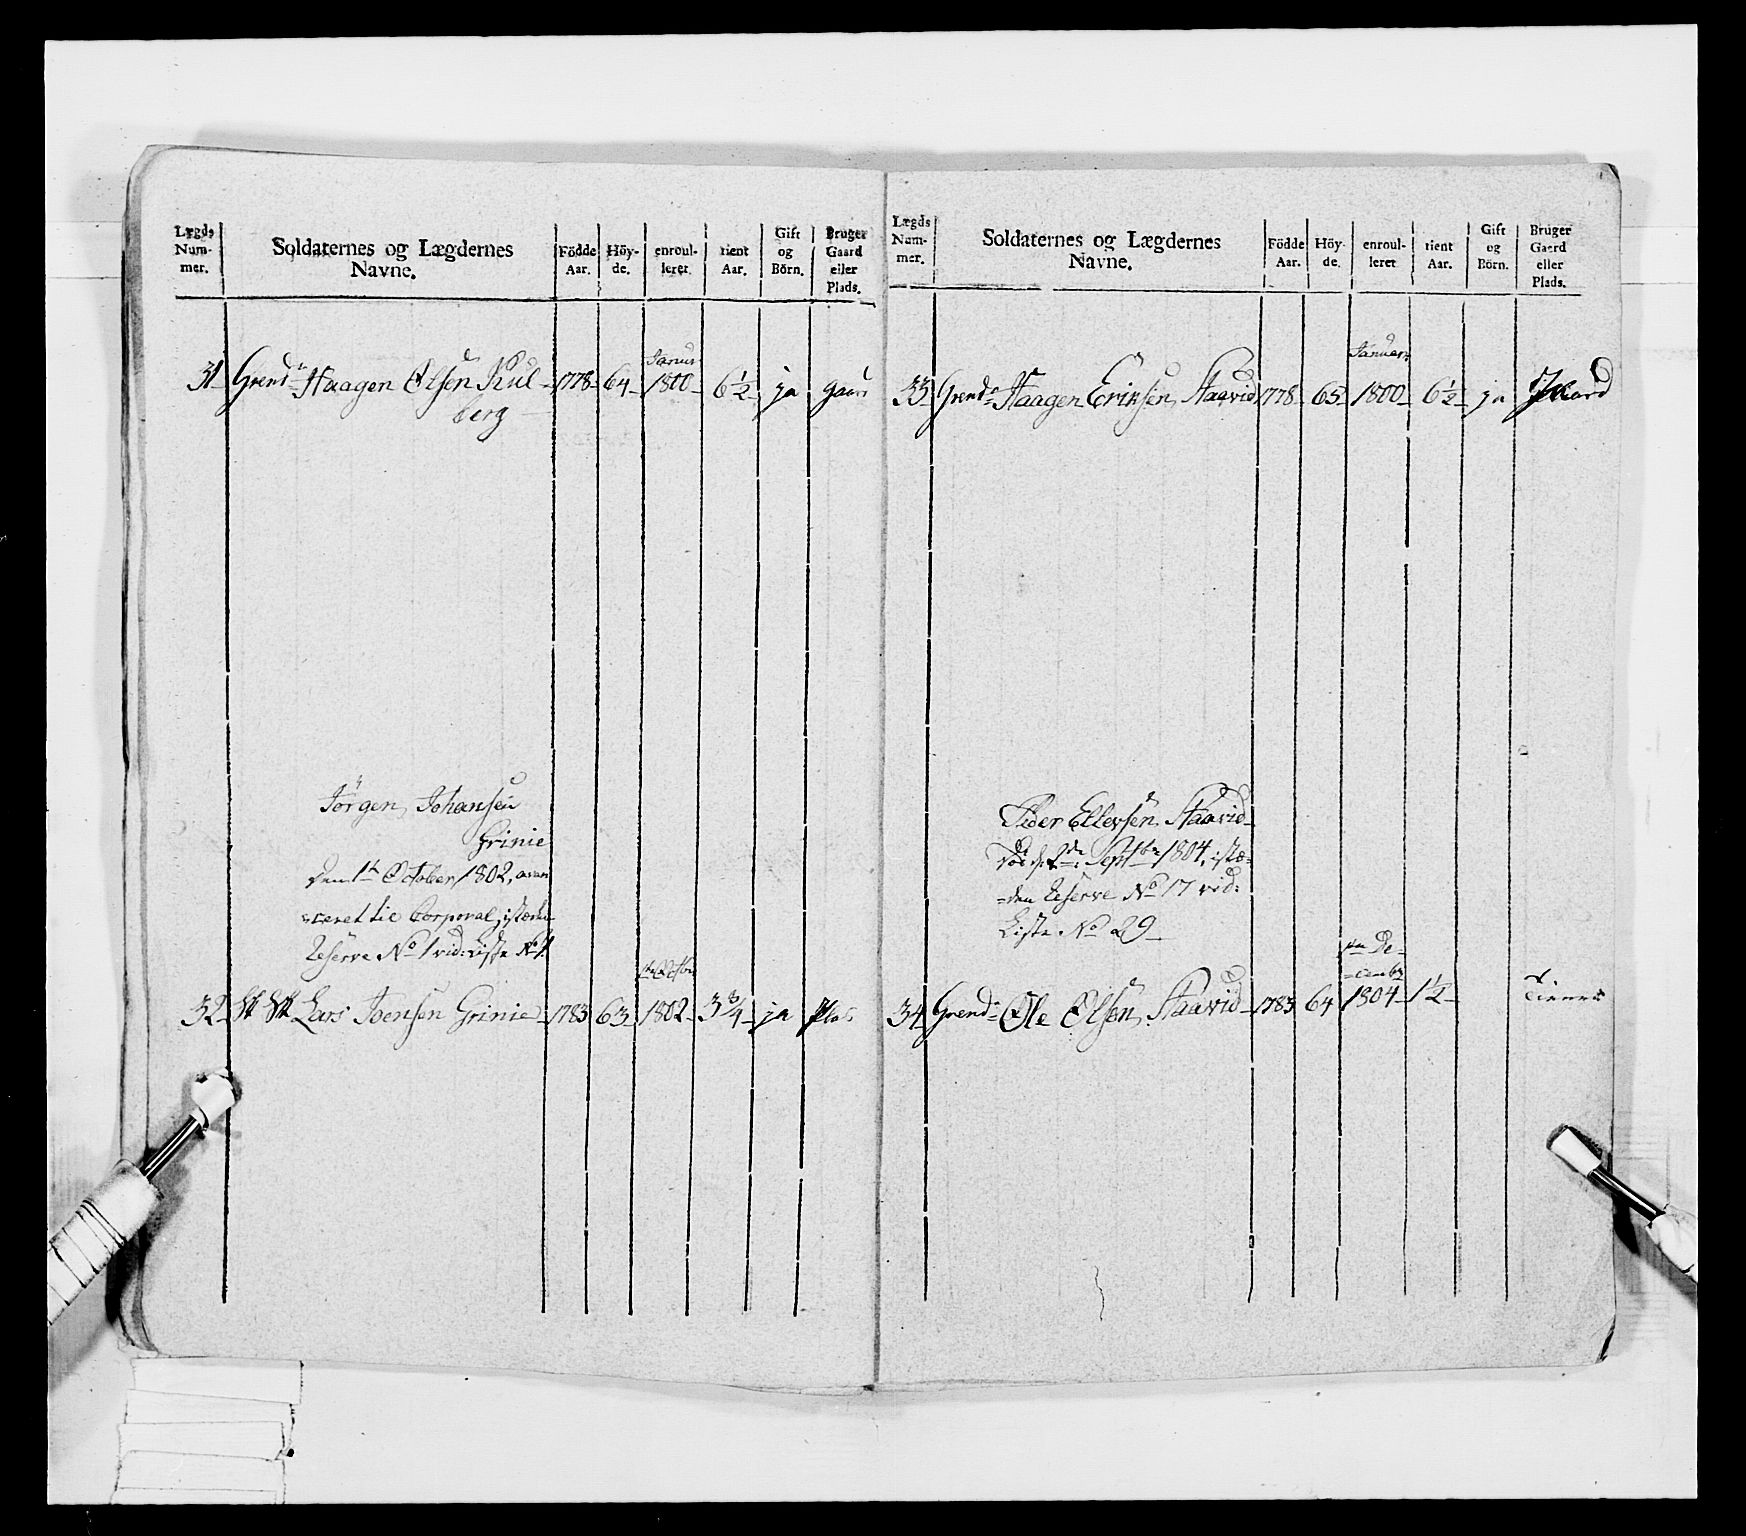 Lægds Num- mer.
Soldaternes og Lægdernes Navne.
Födde Aar.
Höy- de.
enroul- leret
tient Aar.
Gift og Börn.
Bruger Gaard eller Plads.
Janus
31 Grend Haagen Olsen Kul- 1778 64 1800 6½ ja gaard
berg
Jörgen Johansen
Grinie
den 1te October 1802, avan
ceret til Corporal, istæden
Reserve No 1 vid: Liste No 1
32 Lars Joensen Grinie 1783 63 1802 3 3/4 ja Plads
Lægds Num- mer.
Soldaternes og Lægdernes Navne.
Födde Aar.
Höy- de.
enroul- leret
tient Aar.
Gift og Börn.
Bruger Gaard eller Plads.
Januar
33 Grend Haagen Erichsen Staavid 1778 65 1800 6½ ja Gaard
Peder Ellevsen Staavid
Döde 2de Septbr 1804, istæ=
=den Reserve No 17 vid:
Liste No 29
De=
=cembr
34 Grend Ole Olsen Staavid 1783 64 1804 1½ tiener